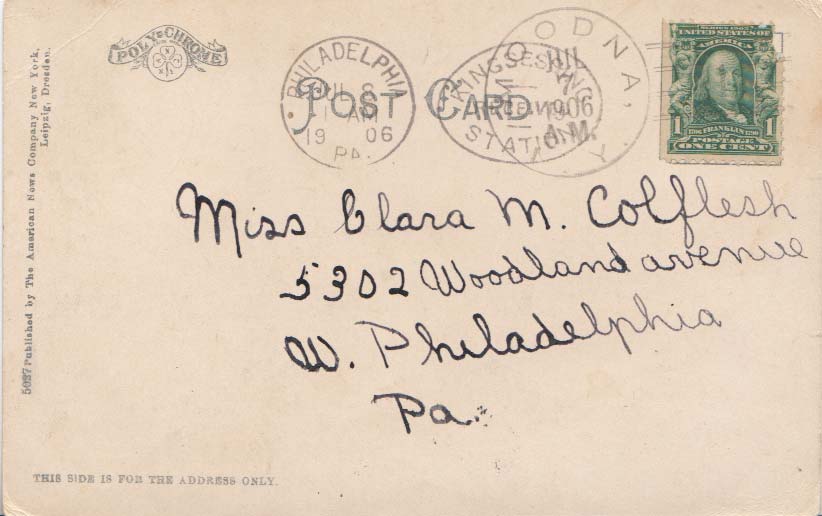 POLY-CHROME
PHILADELPHIA
JUL 8
AM
1906
PA.
POST CARD
KINGSESSING
RECEIVED
STATION
WOODNA, N.Y.
JUL
7
1906
A.M.
SERIES 1902
UNITED STATES OF
AMERICA
1706 FRANKLIN 1790
1 POSTAGE 1
ONE CENT
Miss Clara M. Colflesh
5302 Woodland avenue
W. Philadelphia
Pa.
5027 Published by The American News Company New York,
Leipzig, Dresden.
THIS SIDE IS FOR THE ADDRESS ONLY.